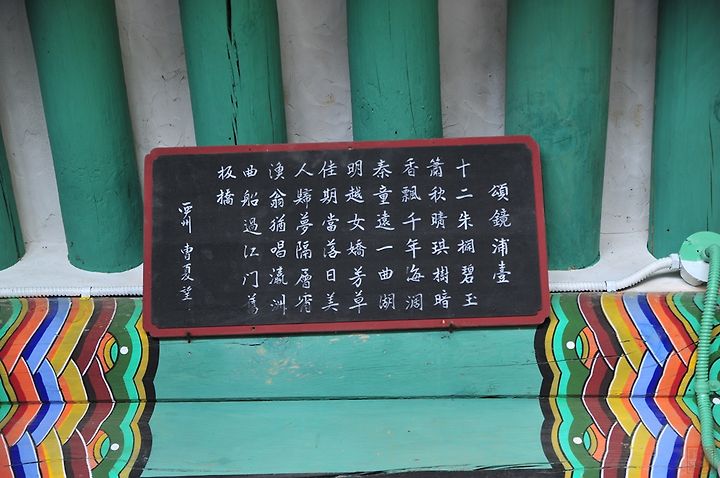 頌鏡浦臺
十二朱桐碧玉
簫秋晴琪樹暗
香飄千年海濶
秦童遠一曲湖
明越女嬌芳草
佳期當落日美
人歸夢隔層霄
漁翁猶唱瀛洲
曲船過江门萬
板橋
西州 曺夏望